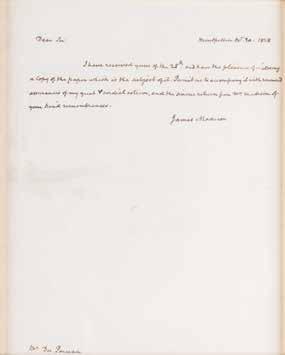 Dear Sir Montpellier 1828
I have received yours of the 28th and have the pleasure of inclosing
a copy of the paper which is the subject of it. Permit me to accompany it with renewed
assurances of my great & cordial esteem, and the sincere return from Mrs Madison of
your kind remembrances.
James Madison